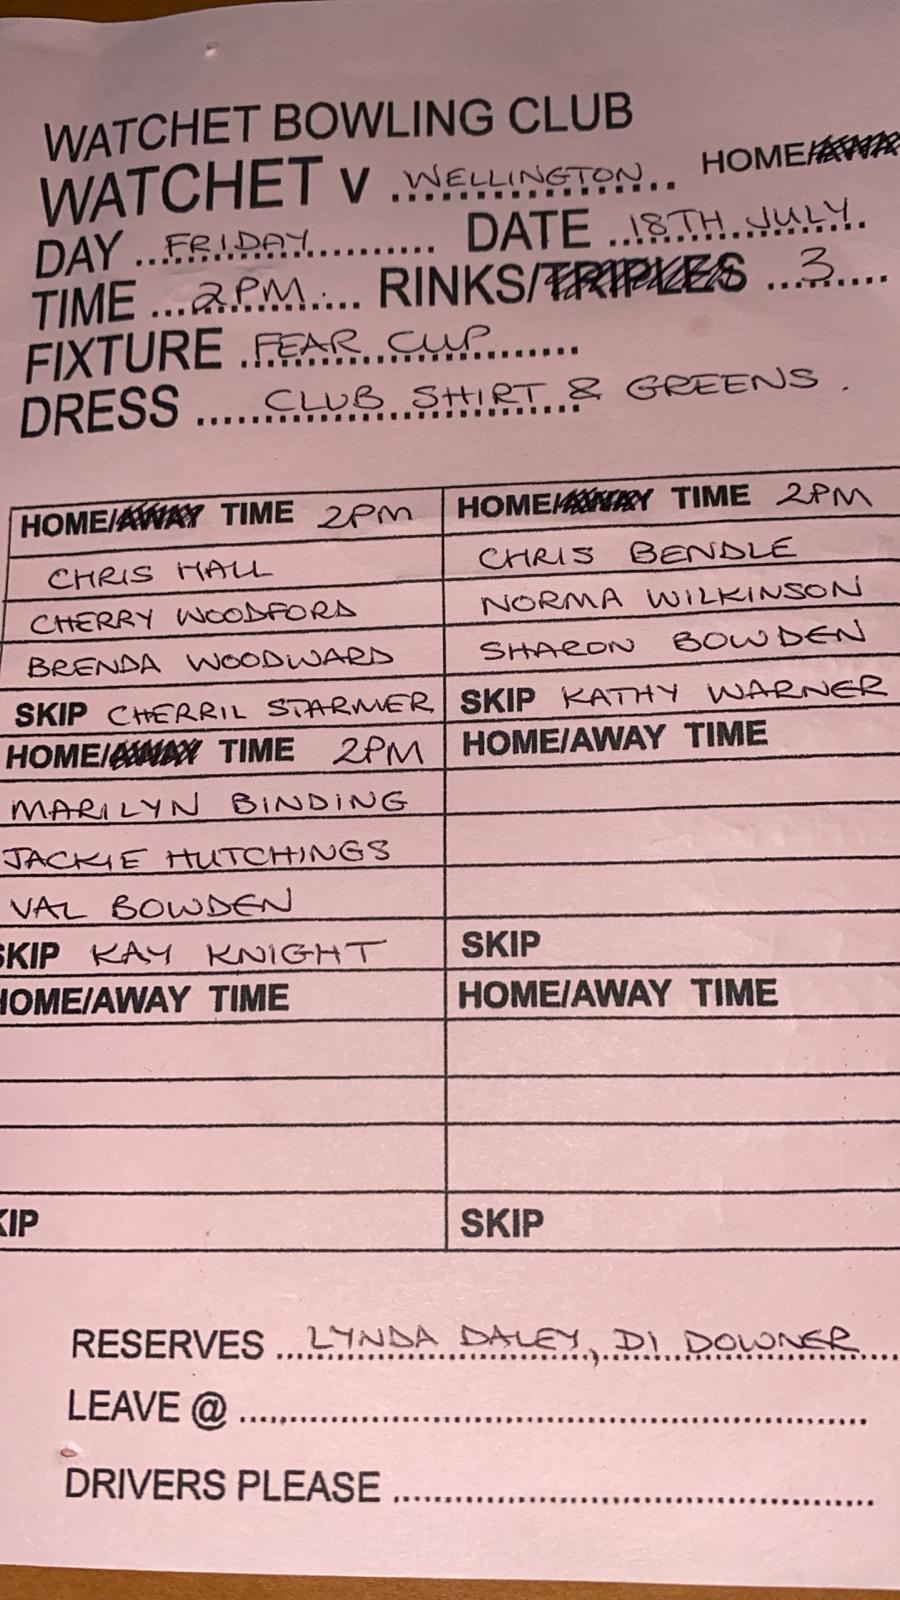 WATCHET BOWLING CLUB
WATCHET v WELLINGTON HOME/AWAY
DAY FRIDAY DATE 18TH JULY
TIME 2PM RINKS/TRIPLES 3
FIXTURE FEAR CUP
DRESS CLUB SHIRT & GREENS.
HOME/AWAY TIME 2PM HOME/AWAY TIME 2PM
CHRIS HALL CHRIS BENDLE
CHERRY WOODFORD NORMA WILKINSON
BRENDA WOODWARD SHARON BOWDEN
SKIP CHERRIL STARMER SKIP KATHY WARNER
HOME/AWAY TIME 2PM HOME/AWAY TIME
MARILYN BINDING
JACKIE HUTCHINGS
VAL BOWDEN
SKIP KAY KNIGHT SKIP
HOME/AWAY TIME HOME/AWAY TIME
SKIP SKIP
RESERVES LYNDA DALEY, DI DOWNER
LEAVE @
DRIVERS PLEASE